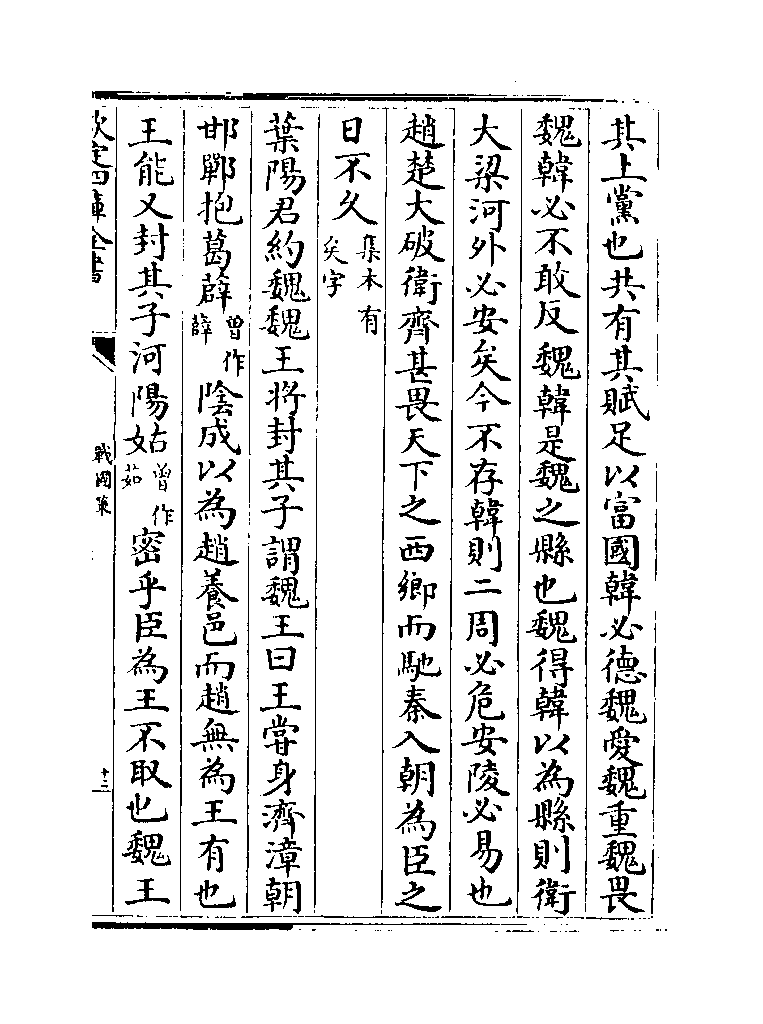 其上黨也共有其賦足以富國韓必德魏愛魏重魏畏
魏韓必不敢反魏韓是魏之縣也魏得韓以為縣則衛
大梁河外必安矣今不存韓則二周必危安陵必易也
趙楚大破衛齊甚畏天下之西鄉而馳秦入朝為臣之
日不久集本有矣字
葉陽君約魏魏王將封其子謂魏王曰王嘗身濟漳朝
邯鄲抱葛薜曾作薛陰成以為趙養邑而趙無為王有也
王能又封其子河陽姑曾作茹密乎臣為王不取也魏王
欽定四庫全書
戰國策
十三